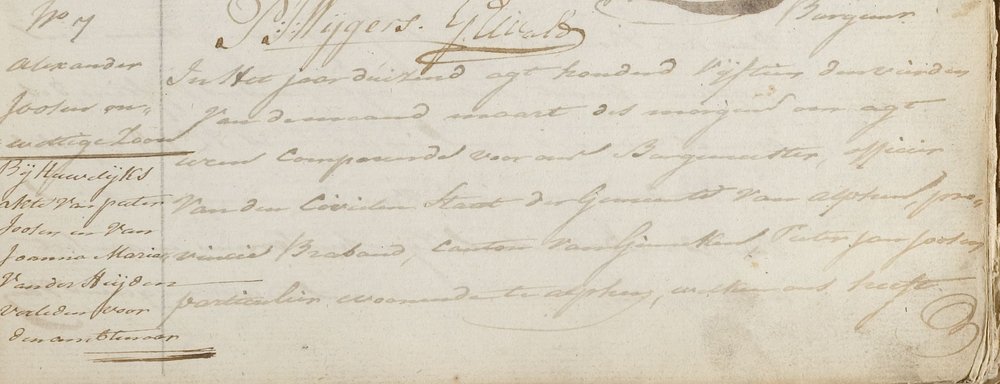 No 7
P: Wijgers. G. Ewals
Burgmr
Alexander
Joosen on-
wettige Zoon
Bij Huwelijks
akte van pater
Joosen en van
Joanna Maria
Van der Heijden
verleden voor
den amttenaar
In Het jaar duizend agt honderd vijftien den vierden
van de maand maart des morgens om agt
uren Compareerde voor ons Burgemeester, officier
van den Civielen Staat der Gemeente van alphen, pro-
vincie Braband, canton van Ginneken, Peter jan Joosen
particulier woonende te alphen, welken ons heeft